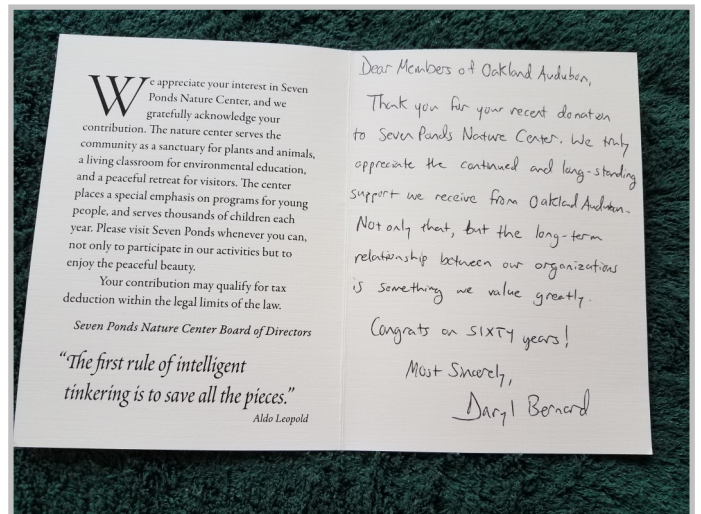 We appreciate your interest in Seven
Ponds Nature Center, and we
gratefully acknowledge your
contribution. The nature center serves the
community as a sanctuary for plants and animals,
a living classroom for environmental education,
and a peaceful retreat for visitors. The center
places a special emphasis on programs for young
people, and serves thousands of children each
year. Please visit Seven Ponds whenever you can,
not only to participate in our activities but to
enjoy the peaceful beauty.
Your contribution may qualify for tax
deduction within the legal limits of the law.
Seven Ponds Nature Center Board of Directors
“The first rule of intelligent
tinkering is to save all the pieces.”
Aldo Leopold
Dear Members of Oakland Audubon,
Thank you for your recent donation
to Seven Ponds Nature Center. We truly
appreciate the continued and long-standing
support we receive from Oakland Audubon.
Not only that, but the long-term
relationship between our organizations
is something we value greatly.
Congrats on SIXTY years!
Most Sincerely,
Daryl Bernard